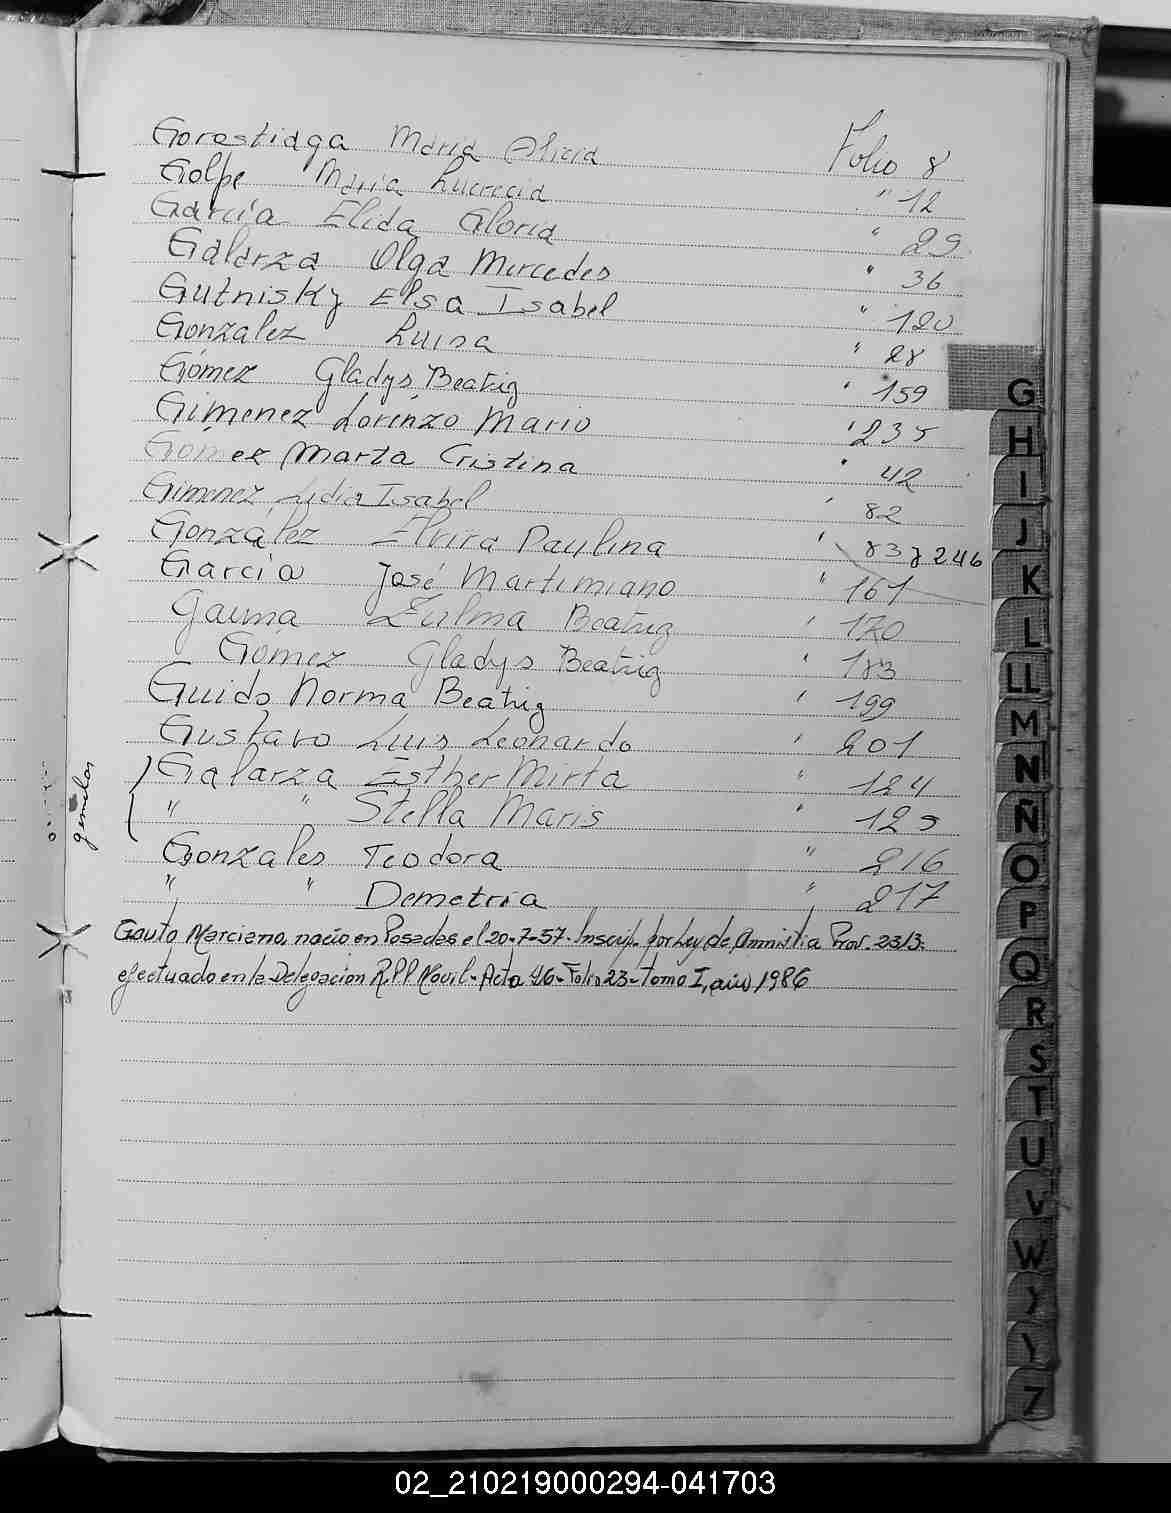 Gorostiaga Maria Alicia Folio 8
Golpe Maria Lucrecia " 12
García Elida Gloria " 29
Galarza Olga Mercedes " 36
Gutnisky Elsa Isabel " 120
Gonzalez Luisa " 28
Gómez Gladys Beatriz " 159
Gimenez Lorenzo Mario " 235
Gomez Marta Cristina " 42
Gimenez Lydia Isabel " 82
Gonzalez Elvira Paulina " 83 y 246
García José Martimiano " 161
Gauna Zulma Beatriz " 170
Gómez Gladys Beatriz " 183
Guido Norma Beatriz " 199
Gustavo Luis Leonardo " 201
gemelas
Galarza Esther Mirta " 124
" " Stella Maris " 125
Gonzales Teodora " 216
" " Demetria " 217
Gauto Marciano, nacio en Posadas el 20-7-57. Inscrip. por Ley de Amnistia Prov. 2313.
efectuado en la Delegacion R.PP Movil - Acta 46 - Folio 23 - tomo I, año 1986
G
H
I
J
K
L
LL
M
N
Ñ
O
P
Q
R
S
T
U
V
W
Y
Z
02_210219000294-041703